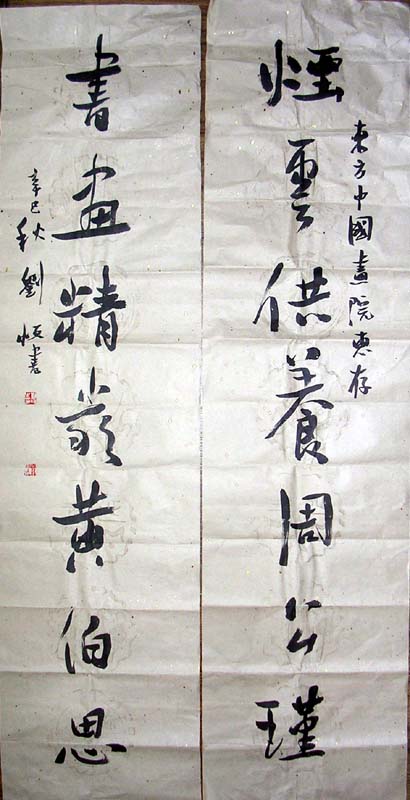 東方中國畫院惠存
煙雲供養周公瑾
書畫精嚴黄伯思
辛巳秋劉恒書